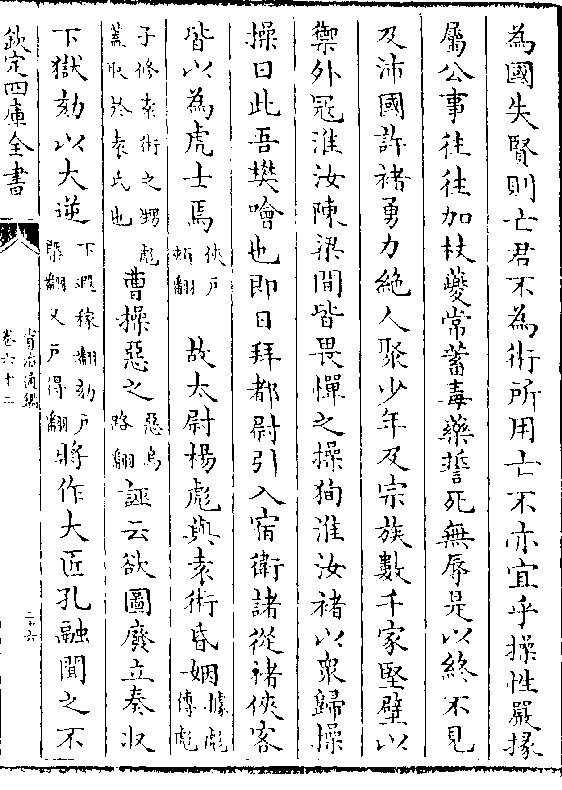 為國失賢則亡君不為術所用亡不亦宜乎操性嚴掾
屬公事往往加杖夔常蓄毒藥誓死無辱是以終不見
及沛國許褚勇力絶人聚少年及宗族數千家堅壁以
禦外冦淮汝陳梁間皆畏憚之操狥淮汝褚以衆歸操
操曰此吾樊噲也即日拜都尉引入宿衛諸從褚俠客
皆以為虎士焉俠戸頰翻故太尉楊彪與袁術昏姻據彪傳彪
子修袁術之甥彪蓋取於袁氏也曹操惡之惡烏路翻誣云欲圖廢立奏收
下獄劾以大逆下遐稼翻劾戸槩翻又戸得翻將作大匠孔融聞之不
欽定四庫全書
資治通鑑
卷六十二
二十六